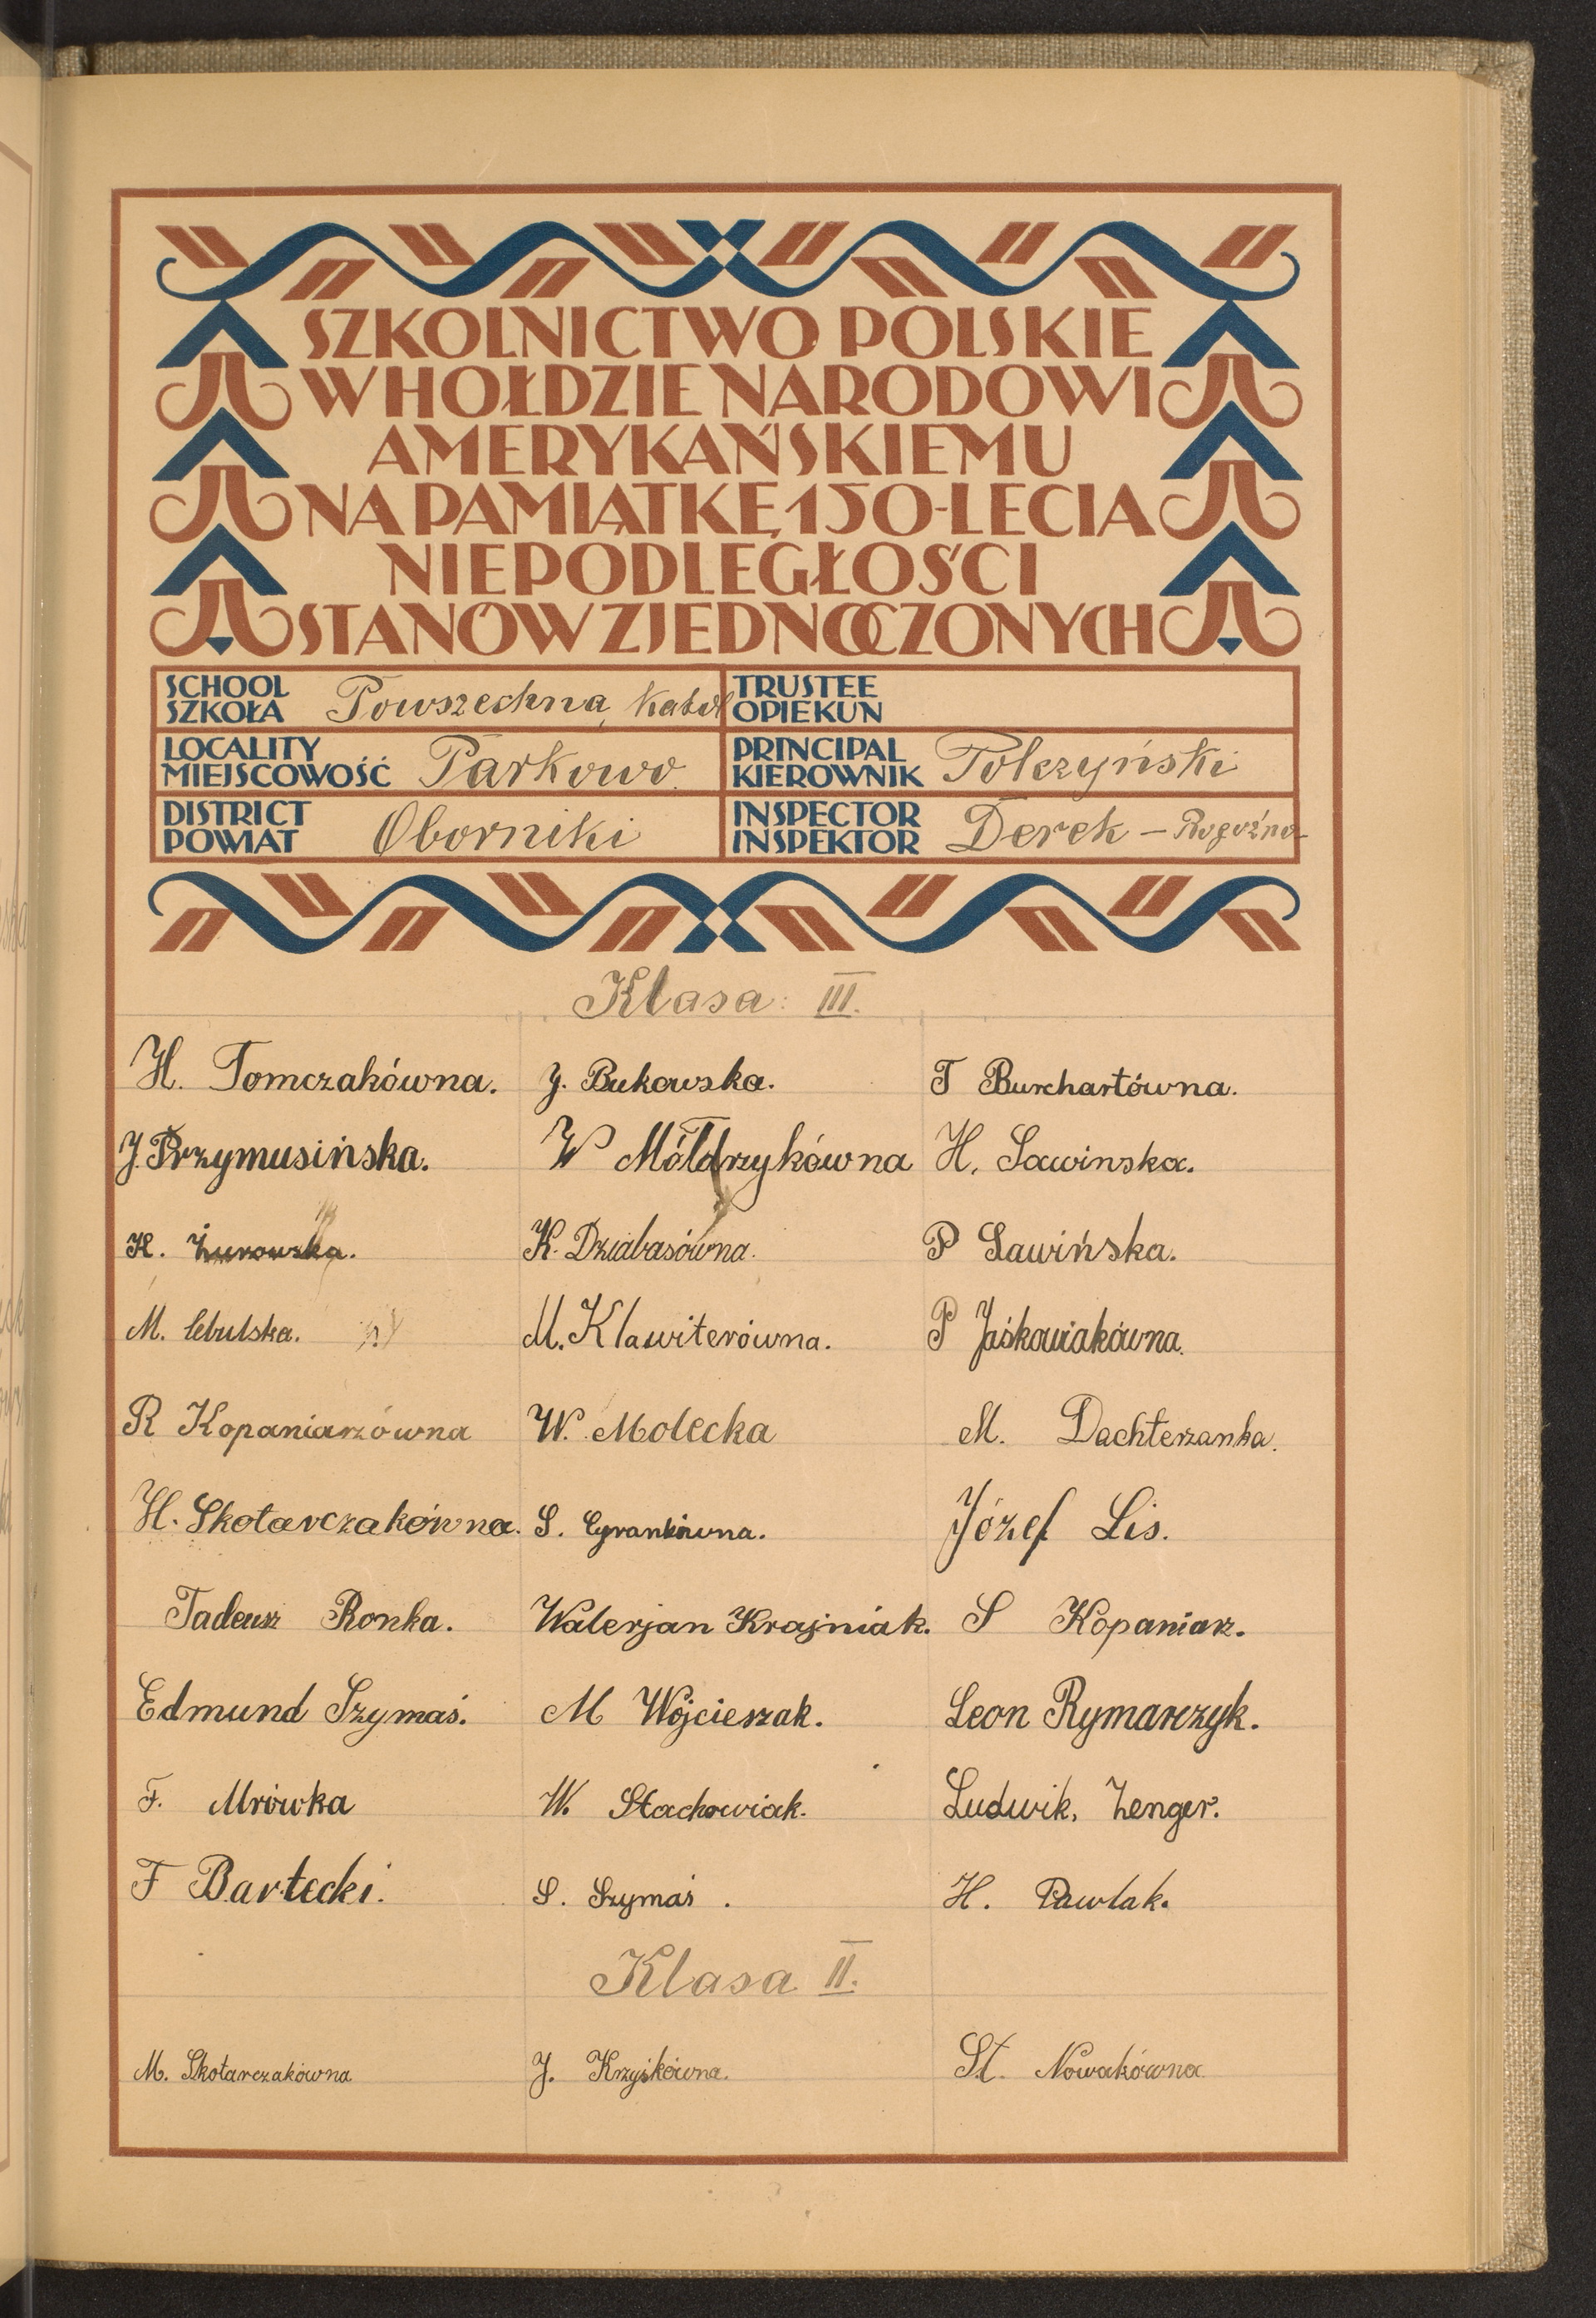 SZKOLNICTWO POLSKIE
W HOŁDZIE NARODOWI
AMERYKAŃSKIEMU
NA PAMIĄTKĘ 150-LECIA
NIEPODLEGŁOŚCI
STANÓW ZJEDNOCZONYCH
SCHOOL
SZKOŁA Powszechna, Katol
TRUSTEE
OPIEKUN
LOCALITY
MIEJSCOWOŚĆ Parkowo.
PRINCIPAL
KIEROWNIK Tolczyński
DISTRICT
POWIAT Oborniki
INSPECTOR
INSPEKTOR Derek – Rogoźno
Klasa: III.
H. Tomczakówna. J. Bukowska. T Burchartówna.
J. Przymusińska. W Móldrzykówna H. Sawinska.
H. Żurowska. K. Dziabasówna. P Sawińska.
M. Cebulska. M. Klawiterówna. P Jaśkowiakówna.
R Kopaniarzówna W. Molecka M. Dachterzanka.
H. Skotarczakówna. S. Cyrankówna. Józef Lis.
Tadeusz Ronka. Walerjan Krajniak. S Kopaniarz.
Edmund Szymaś. M Wojcieszak. Leon Rymarczyk.
F. Mrówka W. Stachowiak. Ludwik, Zenger.
F Bartecki. S. Szymaś . H. Pawlak.
Klasa II.
M. Skotarczakówna J. Krzyśkówna. St. Nowakówna